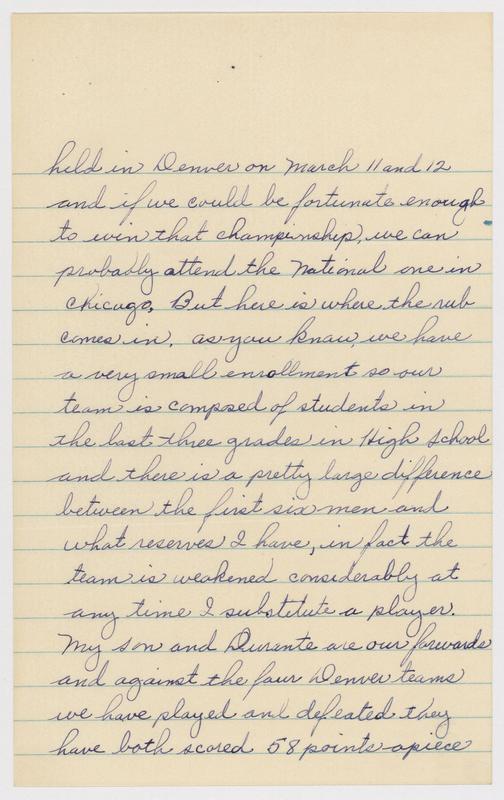 held in Denver on March 11 and 12
and if we could be fortunate enough
to win that championship, we can
probably attend the National one in
Chicago. But here is where the rub
comes in. as you know, we have
a very small enrollment so our
team is composed of students in
the last three grades in High School
and there is a pretty large difference
between the first six men and
what reserves I have, in fact the
team is weakened considerably at
any time I substitute a player.
My son and Durante are our forwards
and against the four Denver teams
we have played and defeated they
have both scored 58 points apiece